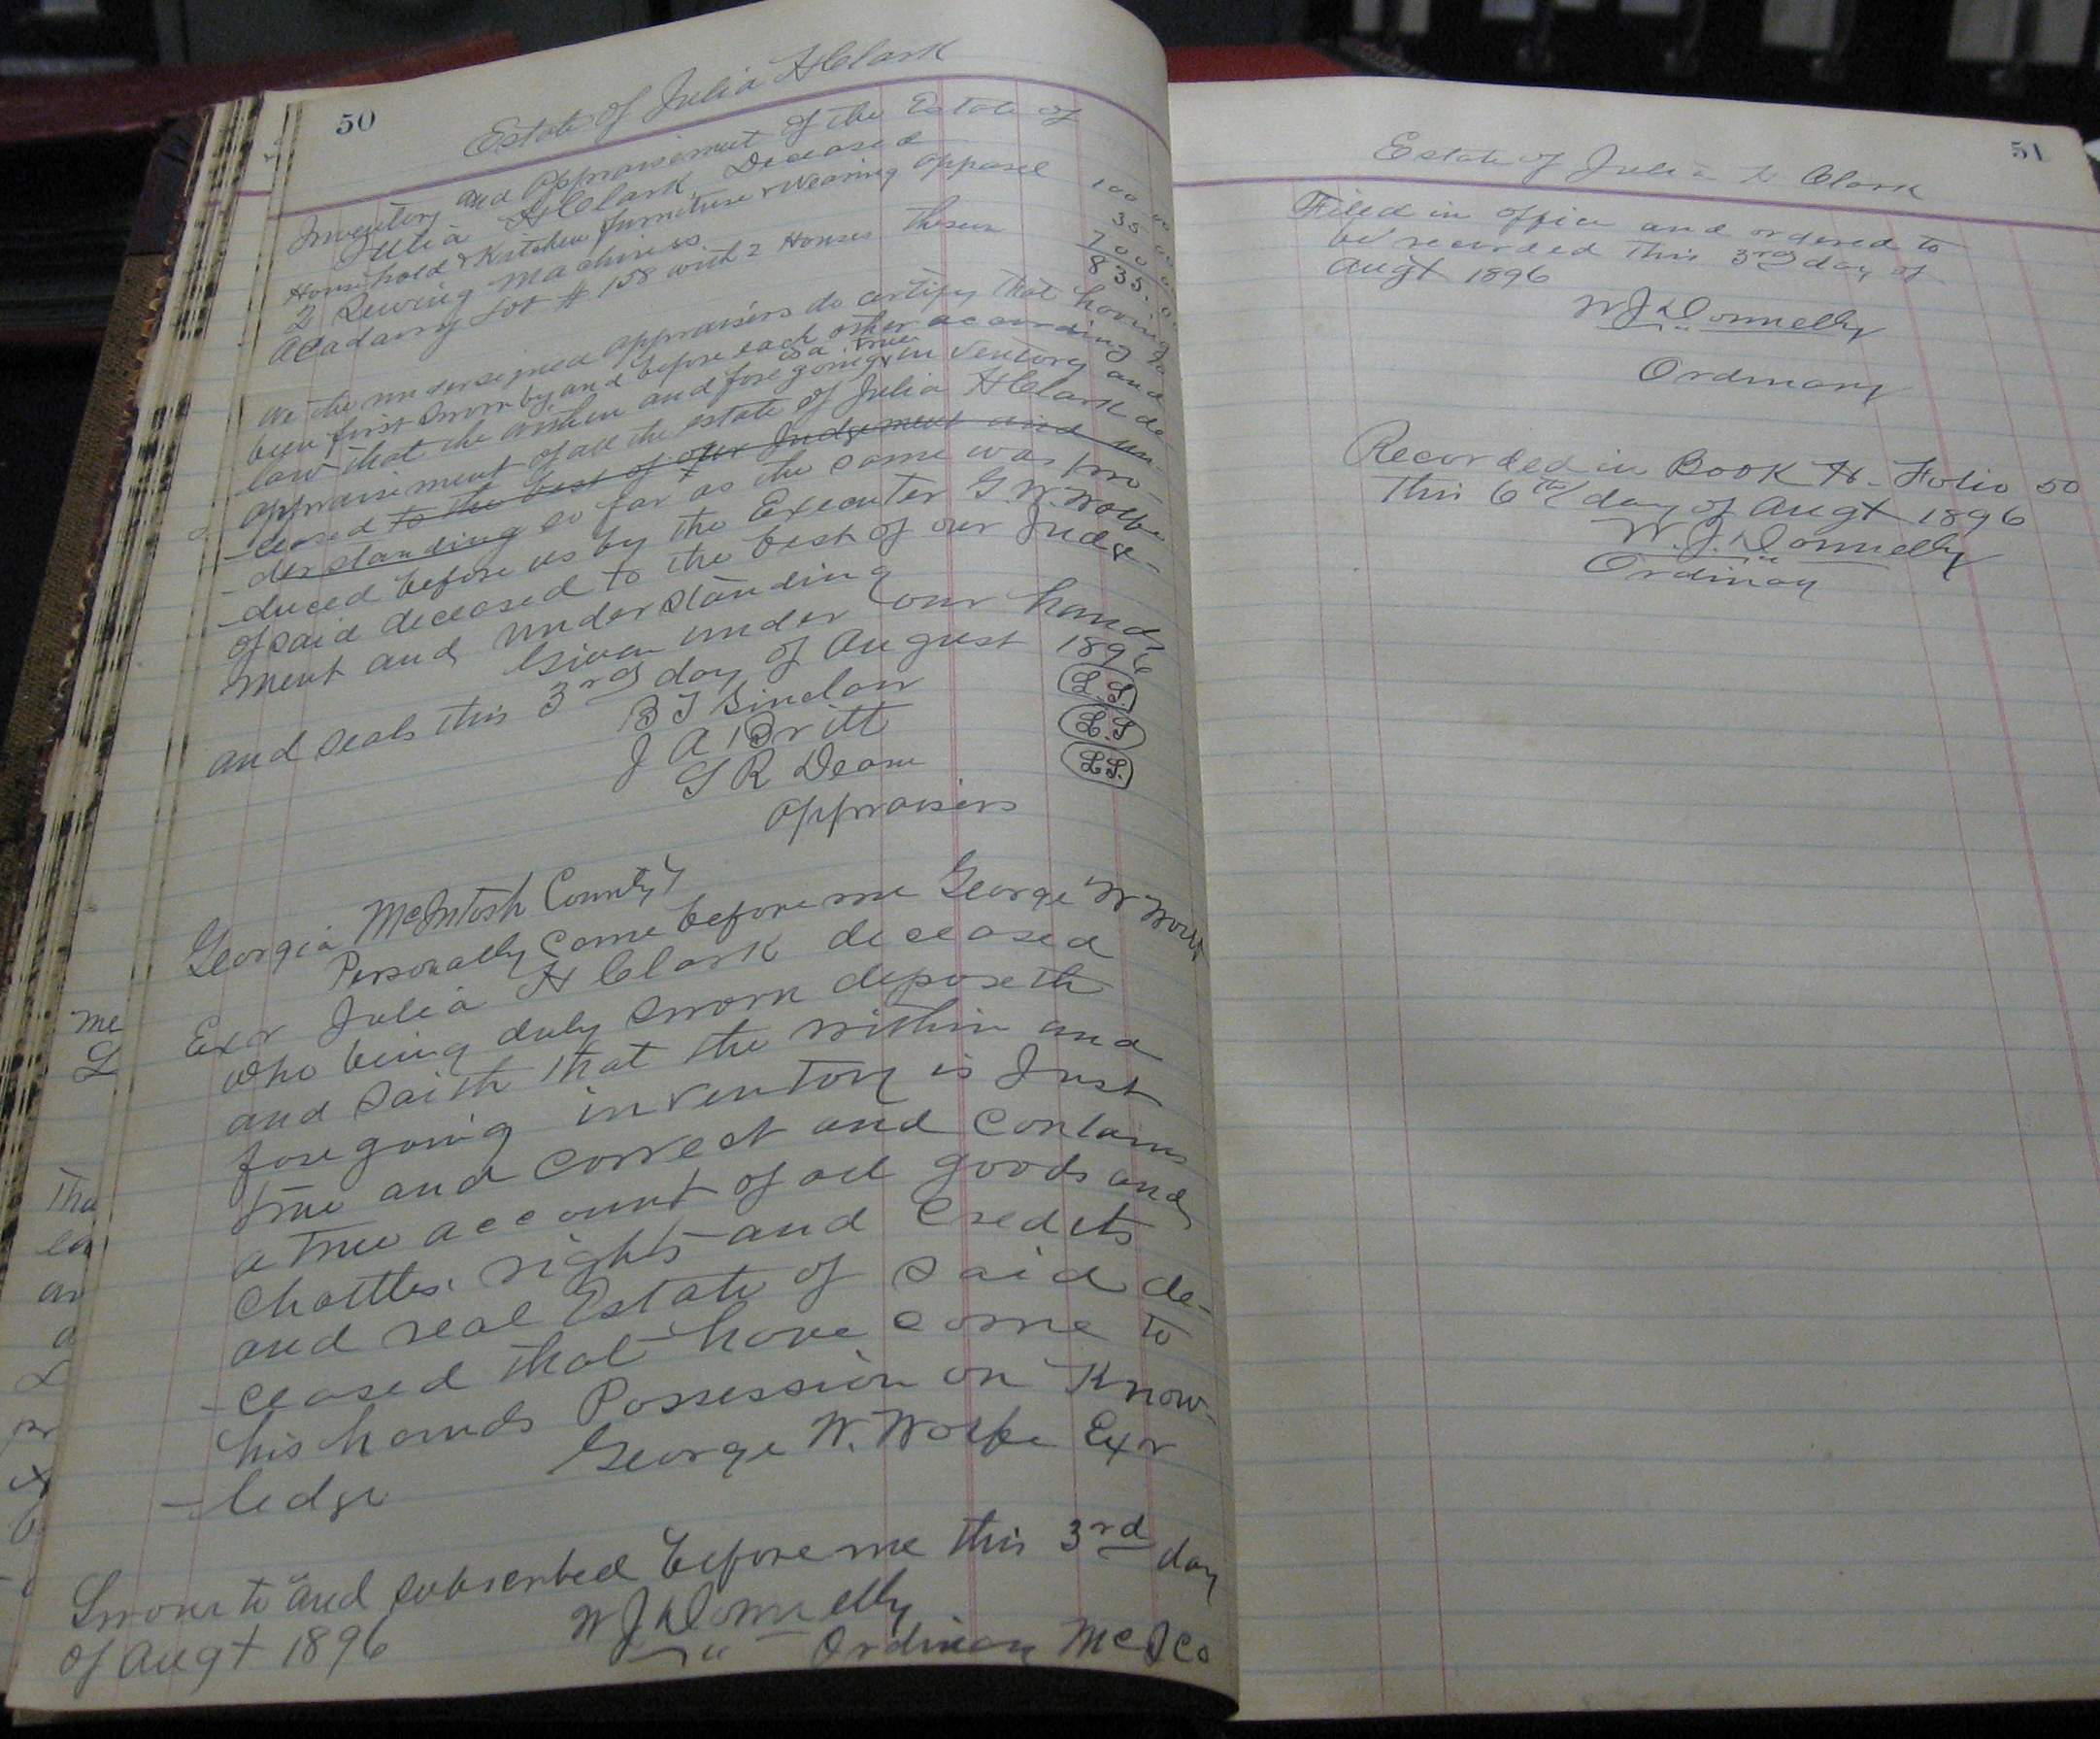 50
Estate of Julia H Clark
Inventory and Appraisement of the Estate of
Julia H Clark Deceased
Household & Kitchen furniture & Wearing apparel 100 00
2 Sewing Machines. 35 00
Acadamy Lot # 158 with 2 Houses thereon 700 00
835.00
We the undersigned appraisers do certify that having
been first sworn by and before each other according to
law that the within and foregoing is a true inventory and
appraisement of all the estate of Julia H Clark de
-ceased to the best of our Judgement and un-
-derstanding so far as the same was pro-
-duced before us by the Executer G W Wolfe
of said deceased to the best of our Judge-
ment and understanding
Given under our hands
and seals this 3rd day of August 1896
B T Sinclair L.S.
J A Britt L.S
G R Dean L.S.
appraisers
Georgia McIntosh County
Personally came before me George W Wolfe
Exor Julia H Clark deceased
who being duly sworn deposeth
and saith that the within and
foregoing inventory is Just
true and correct and contains
a true account of all goods and
Chattles. rights and Credits
and real Estate of said de-
-ceased that have come to
his hands Possession or Know-
-ledge George W. Wolfe Exor
Sworn to and subscribed before me this 3rd day
of Augt 1896 W J Donnelly
Ordinary McI Co
me
L
51
Estate of Julia H Clark
Filed in office and ordered to
be recorded this 3rd day of
Augt 1896
W J Donnelly
Ordinary
Recorded in Book H- Folio 50
This 6th day of Augt 1896
W. J. Donnelly
Ordinay